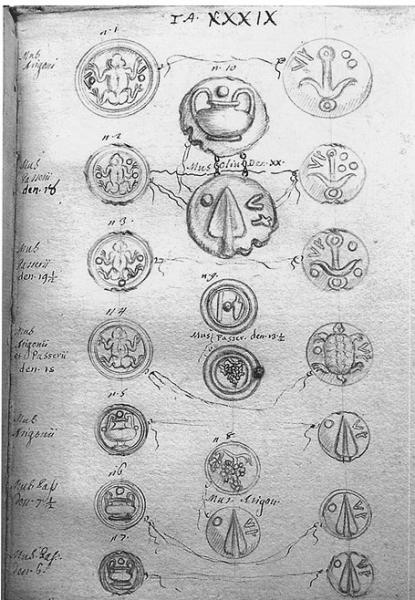 TA. XXXIX
n. 1
Mus
Arigoni
n. 10
n. 2
Mus
Passerii
den. 18
Mus
Oliv
Den. XX.
n. 3
Mus
Passerii
den. 19 ½
n 9.
Mus Passer. den. 13 ½
n. 4
Mus
Arigonii
et Passerii
den. 15
n. 5
Mus
Arigonii
n. 8
n6
den. 7 ½
Mus. Arigon.
n 7.
den. 6